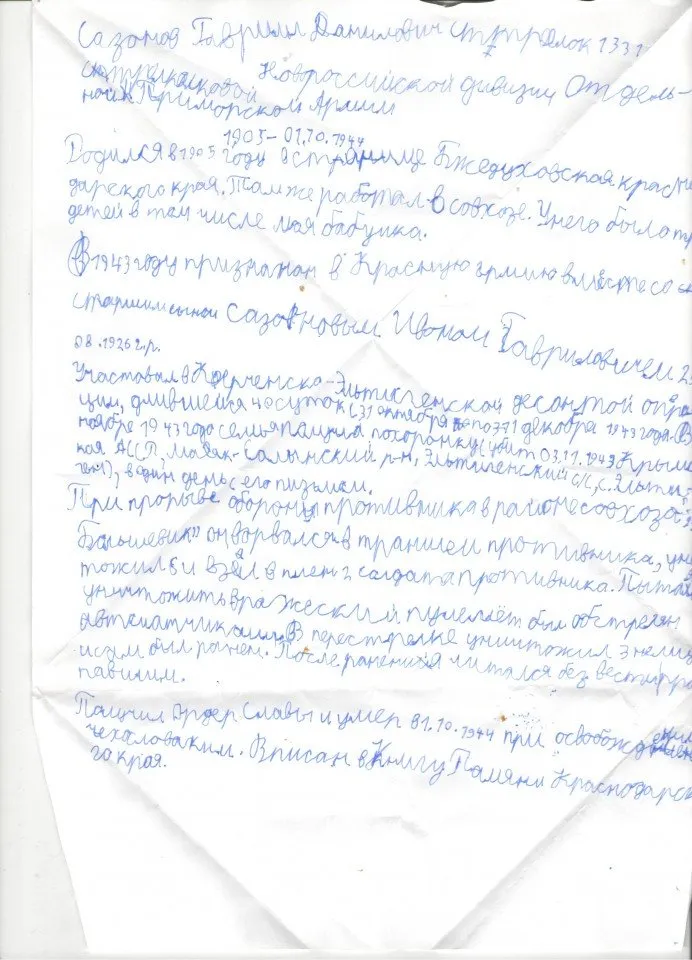 Сазонов Гаврилл Данилович стррелок 1331
стрелковой Новроссийской дивизии Отдель-
ной Приморской Армии
1905-01.10.1944
Родился в 1905 году в станице Бжедуховская красн
дарского края. Там же работал в совхозе. У него было тр
детей в том числе моя бабушка.
В 1943 году признанан в Красную армию вместе со с
старшим сыном Сазоновым Иваном Гавриловичем 2
08.1926 г.р.
Участовал в Керченско-Эльтигенской десантой опра
ции, длившейся 40 суток (31 октября по 11 декабря 1943 года. В
ноябре 1943 года семья пащила похоронку (убит 03.11.1943 Крым
кая АССР, Маяк-Салынский р-н, Эльтигенский с/с, с. Эльти
ген), в один день с его письмом.
При прорыве обороны противника в районе совхоза
Большевик" он ворвался в траншеи противника, ун
тожил 5 и взял в плен 2 солдата противника. Пыта
уничтожить вражеский пулемёт был обстрелян
автоматчиками. В перестрелке уничтожил 3 немц
и сам был ранен. После ранения читался без вести пр
павшим.
Пащчил Орден Славы и умер 01.10.1944 при освобожд
чехаловакии. Вписан в Книгу Памяни Краснодарск
го края.